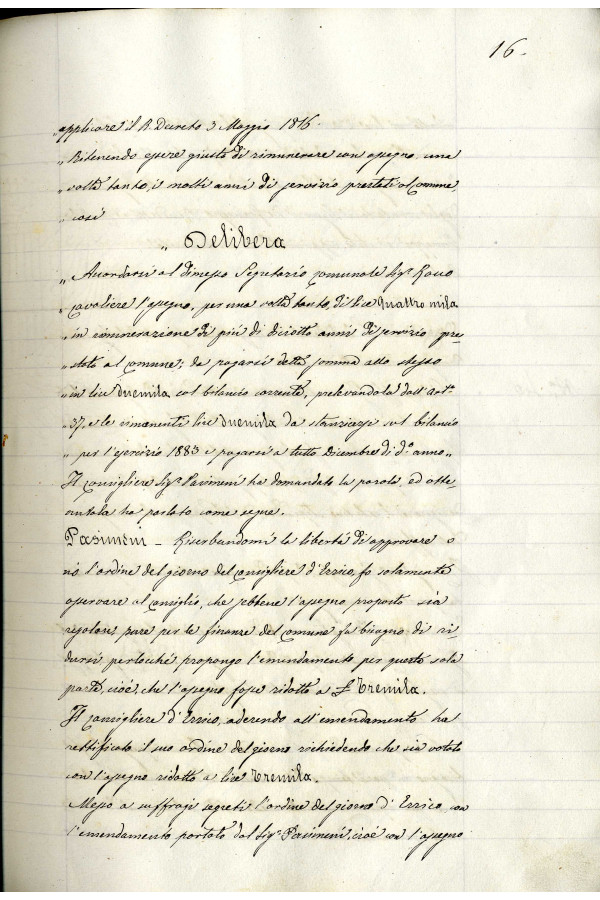 16.
„applicare il R. Decreto 3 Maggio 1816.
„Ritenendo essere giusto di rimunerare con assegno, una
„volta tanto, i molti anni di servizio prestati al Comune,
„così
„Delibera
„Accordarsi al dimesso Segretario comunale Sigr. Rocco
„Cavaliere l'assegno, per una volta tanto, di lire quattro mila
„in rimunerazione di più di diciotto anni di servizio pre=
„stato al comune; da pagarsi detta somma allo stesso
„in lire duemila col bilancio corrente, prelevandola dall'Arto
„37, e le rimanenti lire duemila da stanziarsi sul bilancio
„per l'esercizio 1883 e pagarsi a tutto Dicembre di do anno„
Il consigliere Sigr. Pasimeni ha domandato la parola, ed otte=
nutala ha parlato come segue.
Pasimeni – Riserbandomi la libertà di approvare o
nò l'ordine del giorno del consigliere d'Errico, fo solamente
osservare al consiglio, che sebbene l'assegno proposto sia
regolare, pure per le finanze del comune fa bisogno di ri
dursi, perlocché propongo l'emendamento per questo sola
parte, cioè, che l'assegno fosse ridotto a £ tremila.
Il consigliere d'Errico, aderendo all'emendamento ha
rettificato il suo ordine del giorno richiedendo che sia votato
con l'assegno ridotto a lire tremila.
Messo a suffragi segreti l'ordine del giorno d'Errico, con
l'emendamento portato dal Sigr. Pasimeni, cioè con l'assegno